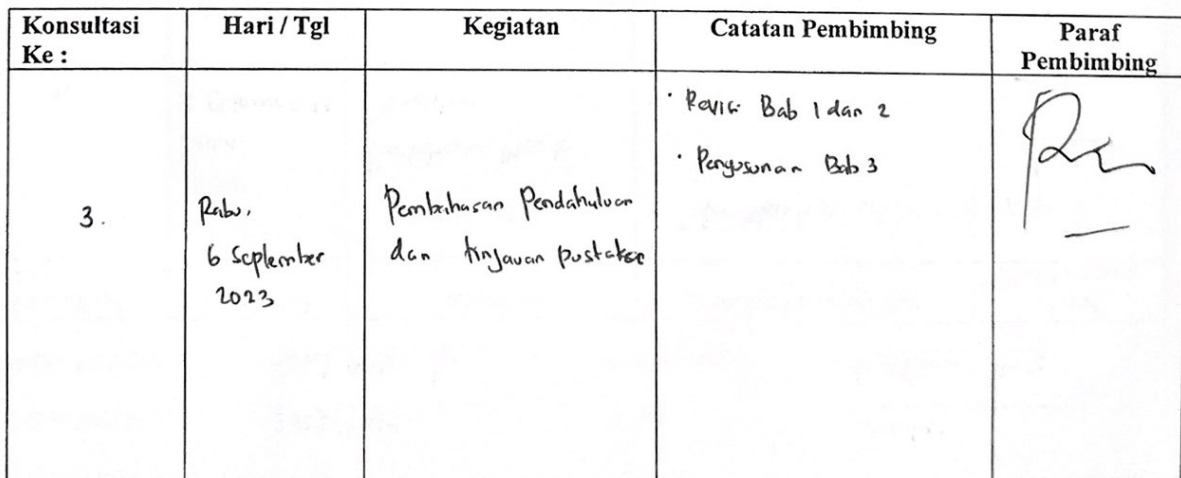 Konsultasi Ke :
Hari / Tgl
Kegiatan
Catatan Pembimbing
Paraf Pembimbing
3.
Rabu,
6 September
2023
Pembahasan Pendahuluan
dan tinjauan pustaka
· Revisi Bab 1 dan 2
· Penyusunan Bab 3